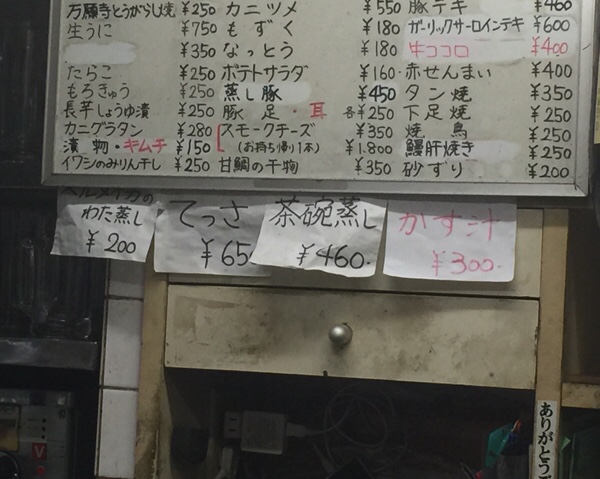 万願寺とうがらし焼 ¥250
生うに ¥750
¥350
たらこ ¥250
もろきゅう ¥250
長芋しょうゆ漬 ¥250
カニグラタン ¥280
漬物・キムチ ¥150
イワシのみりん干し ¥250
カニツメ ¥550
もずく ¥180
なっとう ¥180
ポテトサラダ ¥160
蒸し豚 ¥450
豚足・耳 各¥250
スモークチーズ ¥350
(お持ち帰り1本) ¥1.800
甘鯛の干物 ¥350
豚テキ ¥460
ガーリックサーロインテキ ¥600
牛ココロ ¥400
赤せんまい ¥400
タン焼 ¥350
下足焼 ¥250
焼鳥 ¥250
鰻肝焼き ¥250
砂ずり ¥200
わた蒸し
¥200
てっさ
¥65
茶碗蒸し
¥460.
かす汁
¥300.
ありがとうご